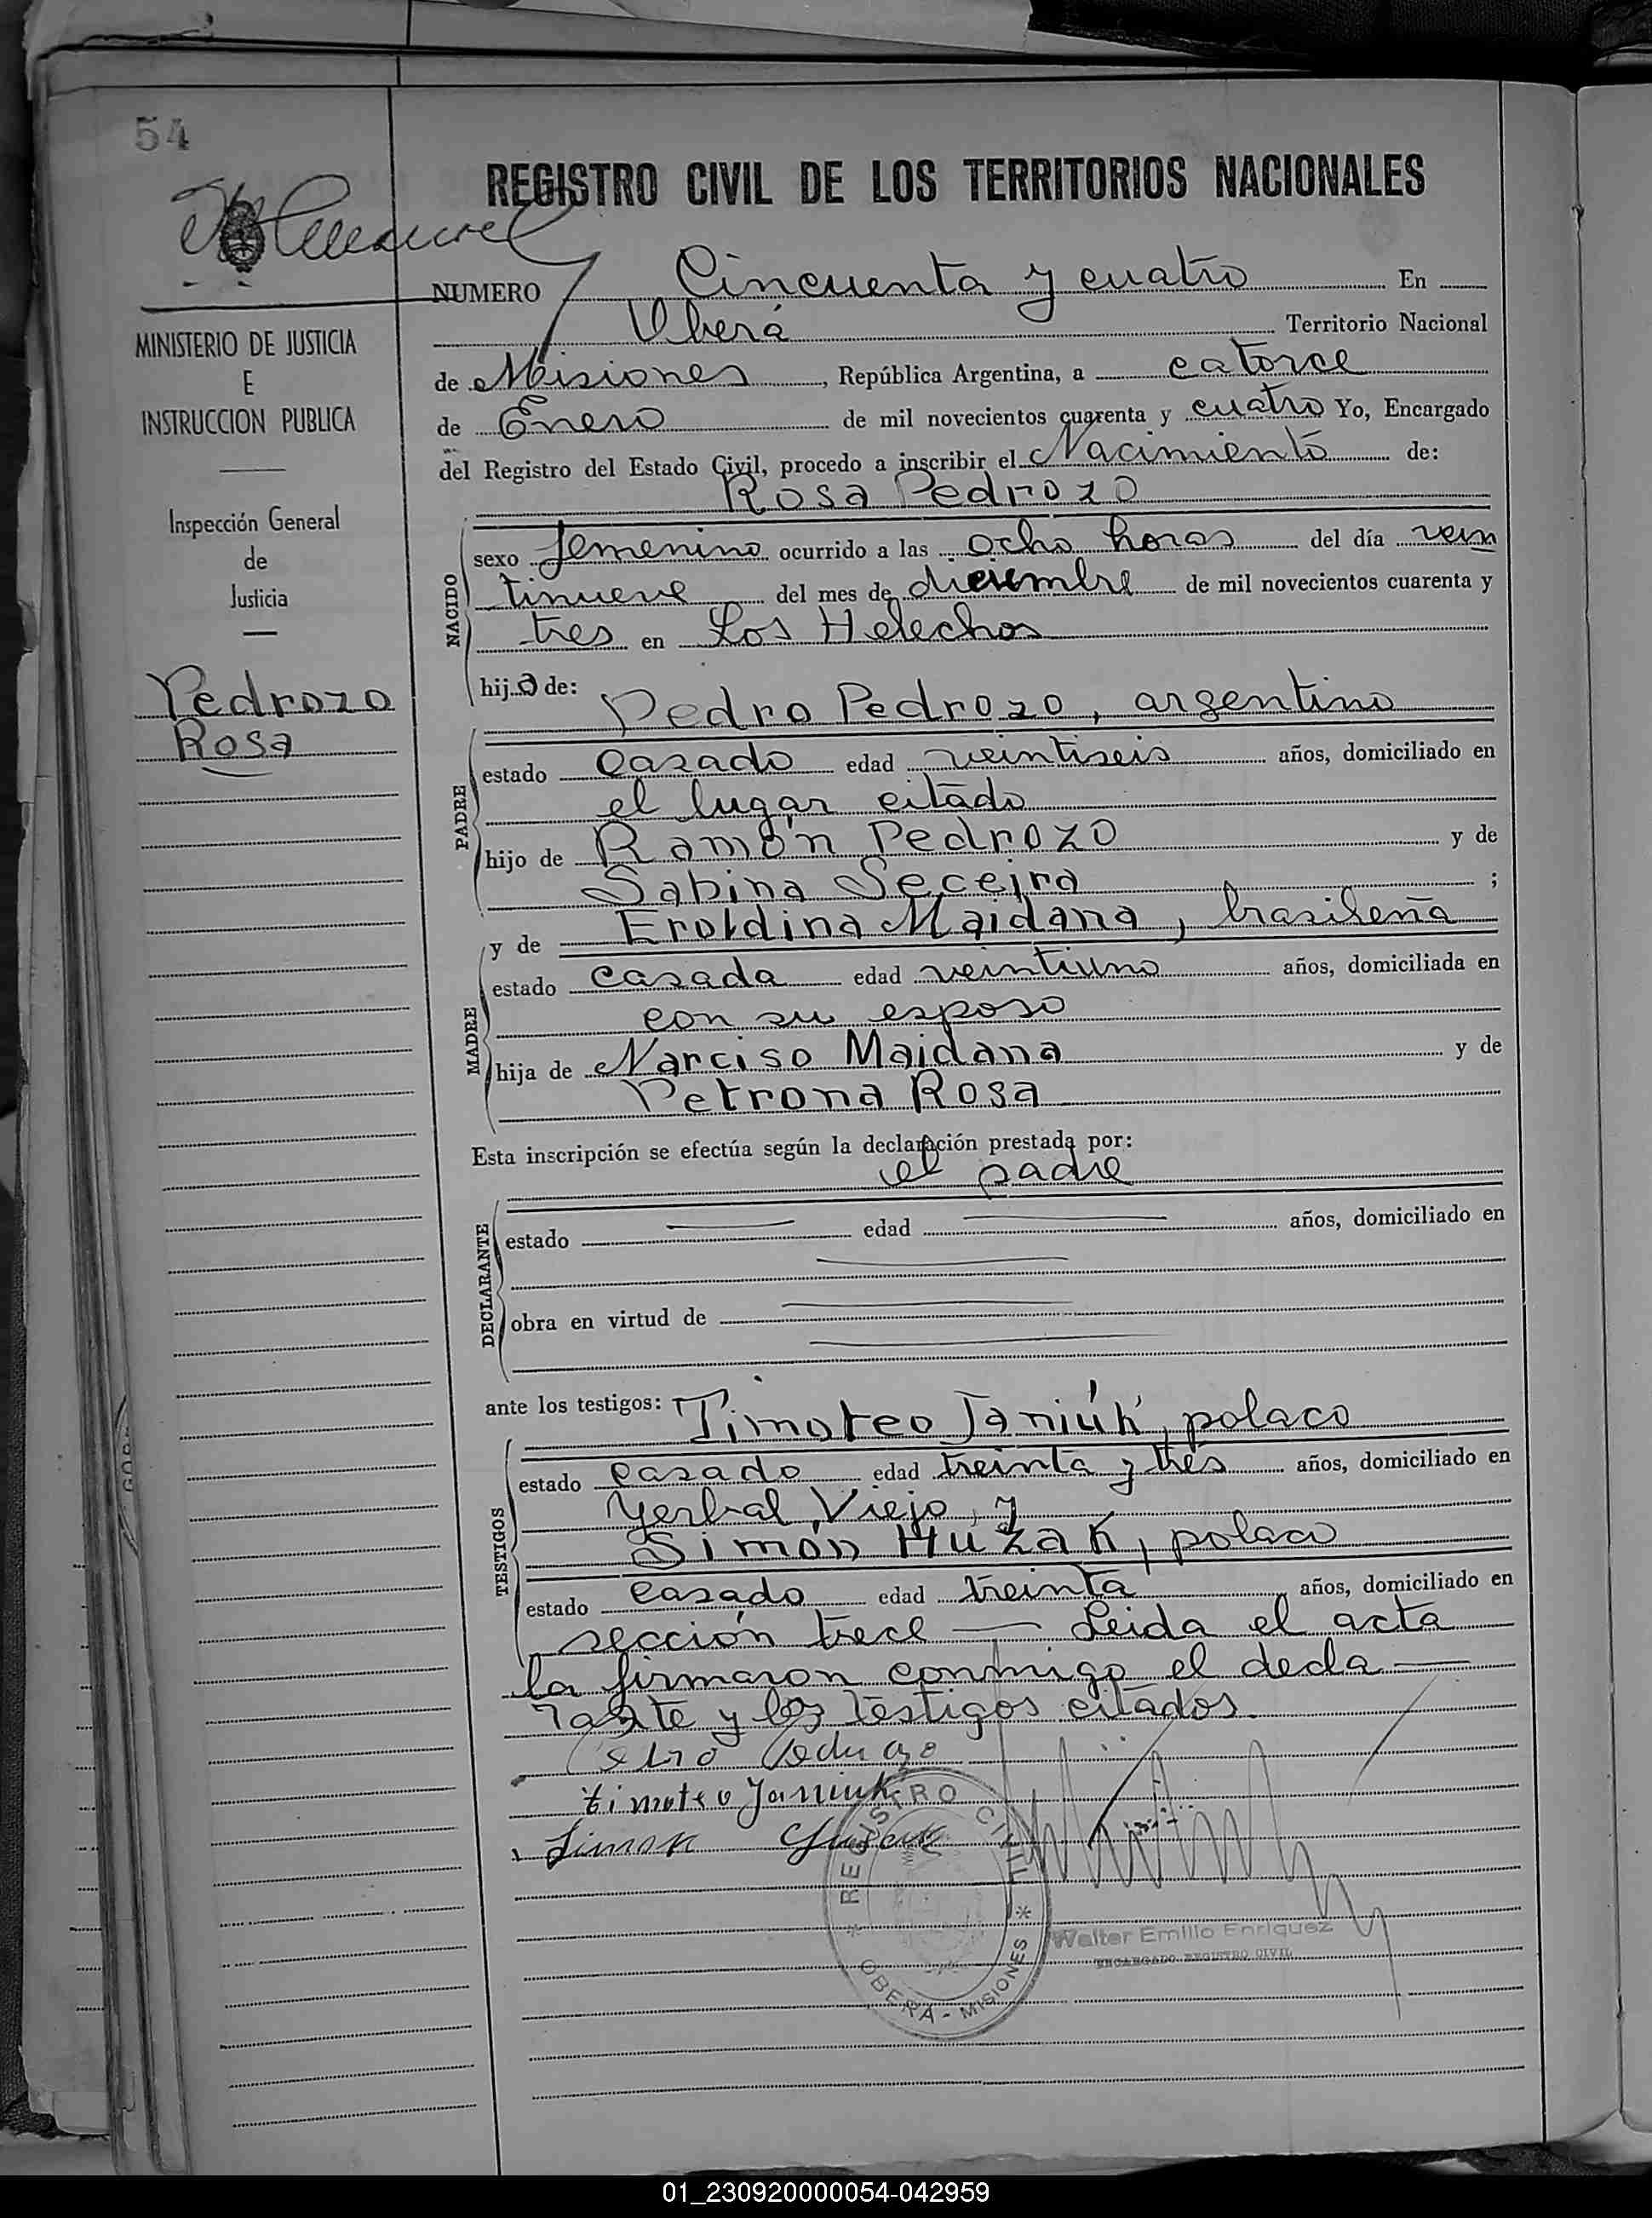 54
REGISTRO CIVIL DE LOS TERRITORIOS NACIONALES
NUMERO Cincuenta y cuatro En
Oberá Territorio Nacional
de Misiones, República Argentina, a catorce
de Enero de mil novecientos cuarenta y cuatro Yo, Encargado
del Registro del Estado Civil, procedo a inscribir el Nacimiento de:
Rosa Pedrozo
MINISTERIO DE JUSTICIA
E
INSTRUCCION PUBLICA
Inspección General
de
Justicia
Pedrozo
Rosa
NACIDO
sexo femenino ocurrido a las ocho horas del día vein
tinueve del mes de diciembre de mil novecientos cuarenta y
tres en Los Helechos
hij a de:
PADRE
Pedro Pedrozo, argentino
estado casado edad veintiseis años, domiciliado en
el lugar citado
hijo de Ramón Pedrozo y de
Sabina Seceira ;
MADRE
y de Eroldina Maidana, brasileña
estado casada edad veintiuno años, domiciliada en
con su esposo
hija de Narciso Maidana y de
Petrona Rosa
Esta inscripción se efectúa según la declaración prestada por:
el padre
DECLARANTE
estado edad años, domiciliado en
obra en virtud de
ante los testigos: Timoteo Janiuk, polaco
TESTIGOS
estado casado edad treinta y tres años, domiciliado en
Yerbal Viejo, y
Simón Huzak, polaco
estado casado edad treinta años, domiciliado en
sección trece — Leida el acta
la firmaron conmigo el decla—
rante y los testigos citados.
timoteo Janiuk
Simon
REGISTRO CIVIL
OBERA - MISIONES
Walter Emilio Enriquez
ENCARGADO REGISTRO CIVIL
01_230920000054-042959